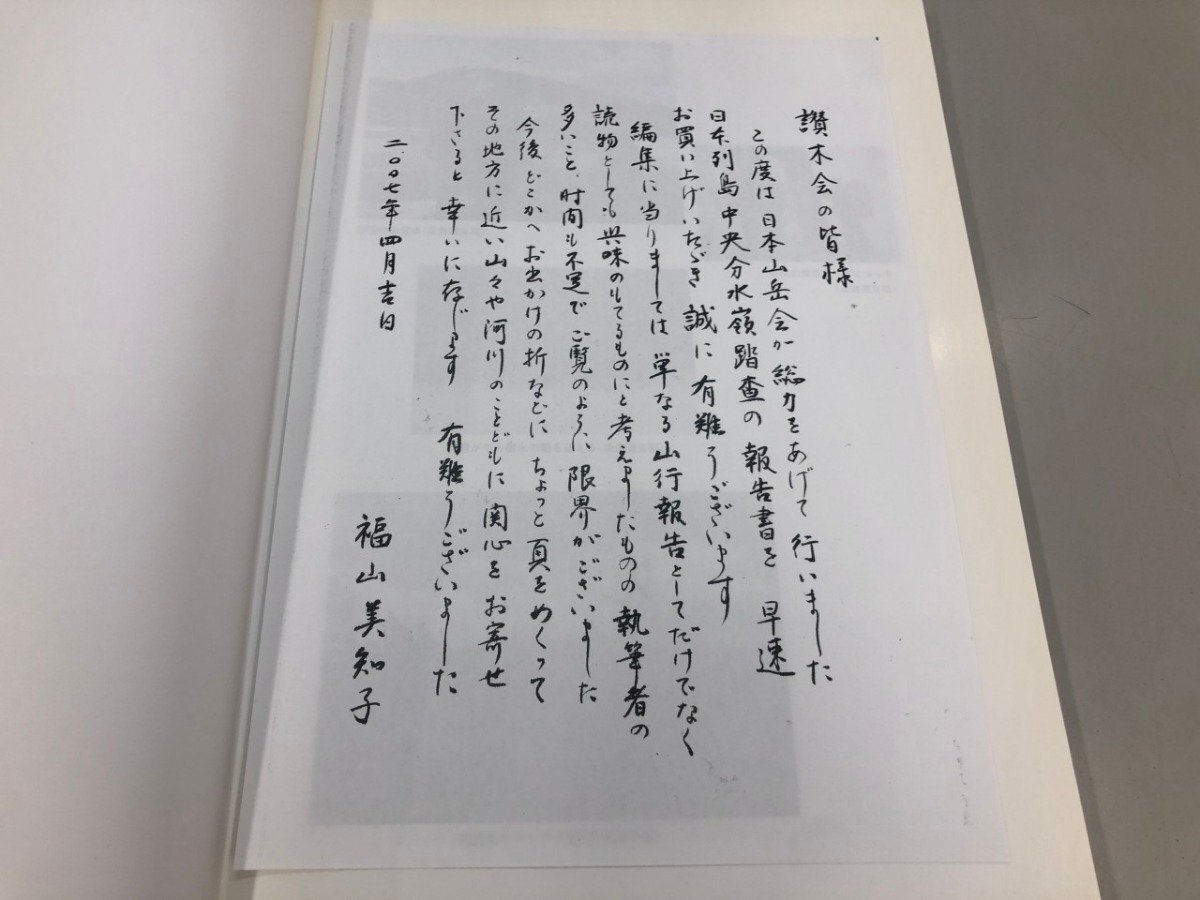 讃木会の皆様
この度は日本山岳会が総力をあげて行いました
日本列島中央分水嶺踏査の報告書を早速
お買い上げいたゞき誠に有難うございます
編集に当りましては単なる山行報告としてだけでなく
読物としても興味のもてるものにと考えましたものの執筆者の
多いこと、時間も不足でご覧のように限界がございました
今後どこかへお出かけの折などにちょっと頁をめくって
その地方に近い山々や河川のことどもに関心をお寄せ
下さると幸いに存じます 有難うございました
二〇〇七年四月吉日
福山美知子